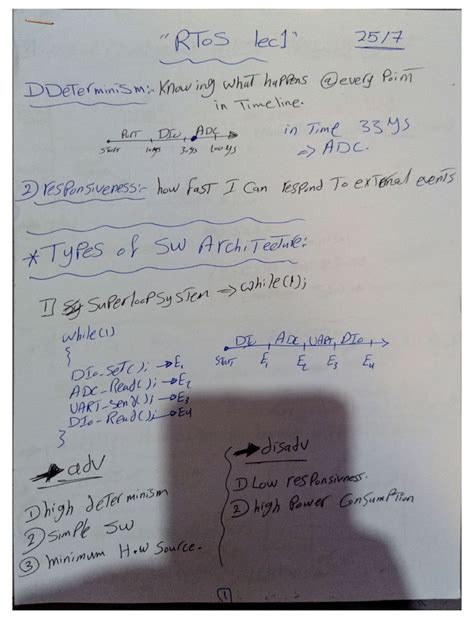 "RToS lec1" 25/7
1) DeTerminism:- Knowing what happens @ every Point
in Timeline.
Port DIo ADC
Start 10ys 100ys
in Time 33 ys
=> ADC.
2) responsiveness:- how fast I can respond To external events
* Types of SW ArchiTecture:
1] SuperloopSysTem => while(1);
while(1)
{
DIo-SeTC(); → E1
ADC-Read(); → E2
UART-Send(); → E3
DIo-Read(); → E4
}
DIo ADC UART DIo
Start E1 E2 E3 E4
→ adv
1) high deTerminism
2) Simple SW
3) minimum H.w Source.
→ disadv
1) Low responsivness.
2) high Power ConsumpTion
1